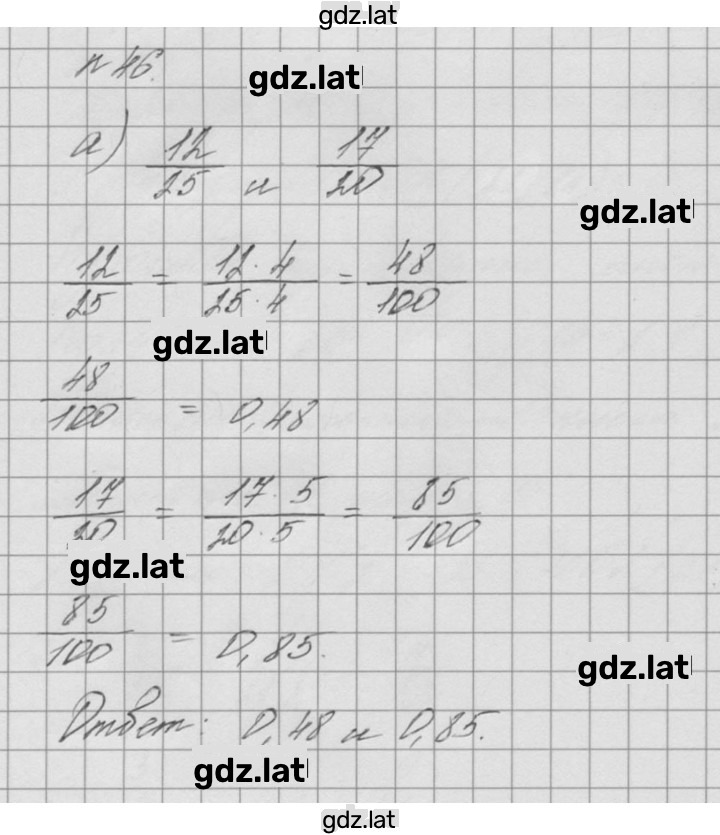 gdz.lat
n 46.
gdz.lat
а) 12/25 и 17/20
gdz.lat
12/25 = 12·4/25·4 = 48/100
gdz.lat
48/100 = 0,48
17/20 = 17·5/20·5 = 85/100
gdz.lat
85/100 = 0,85.
gdz.lat
Ответ: 0,48 и 0,85.
gdz.lat
gdz.lat